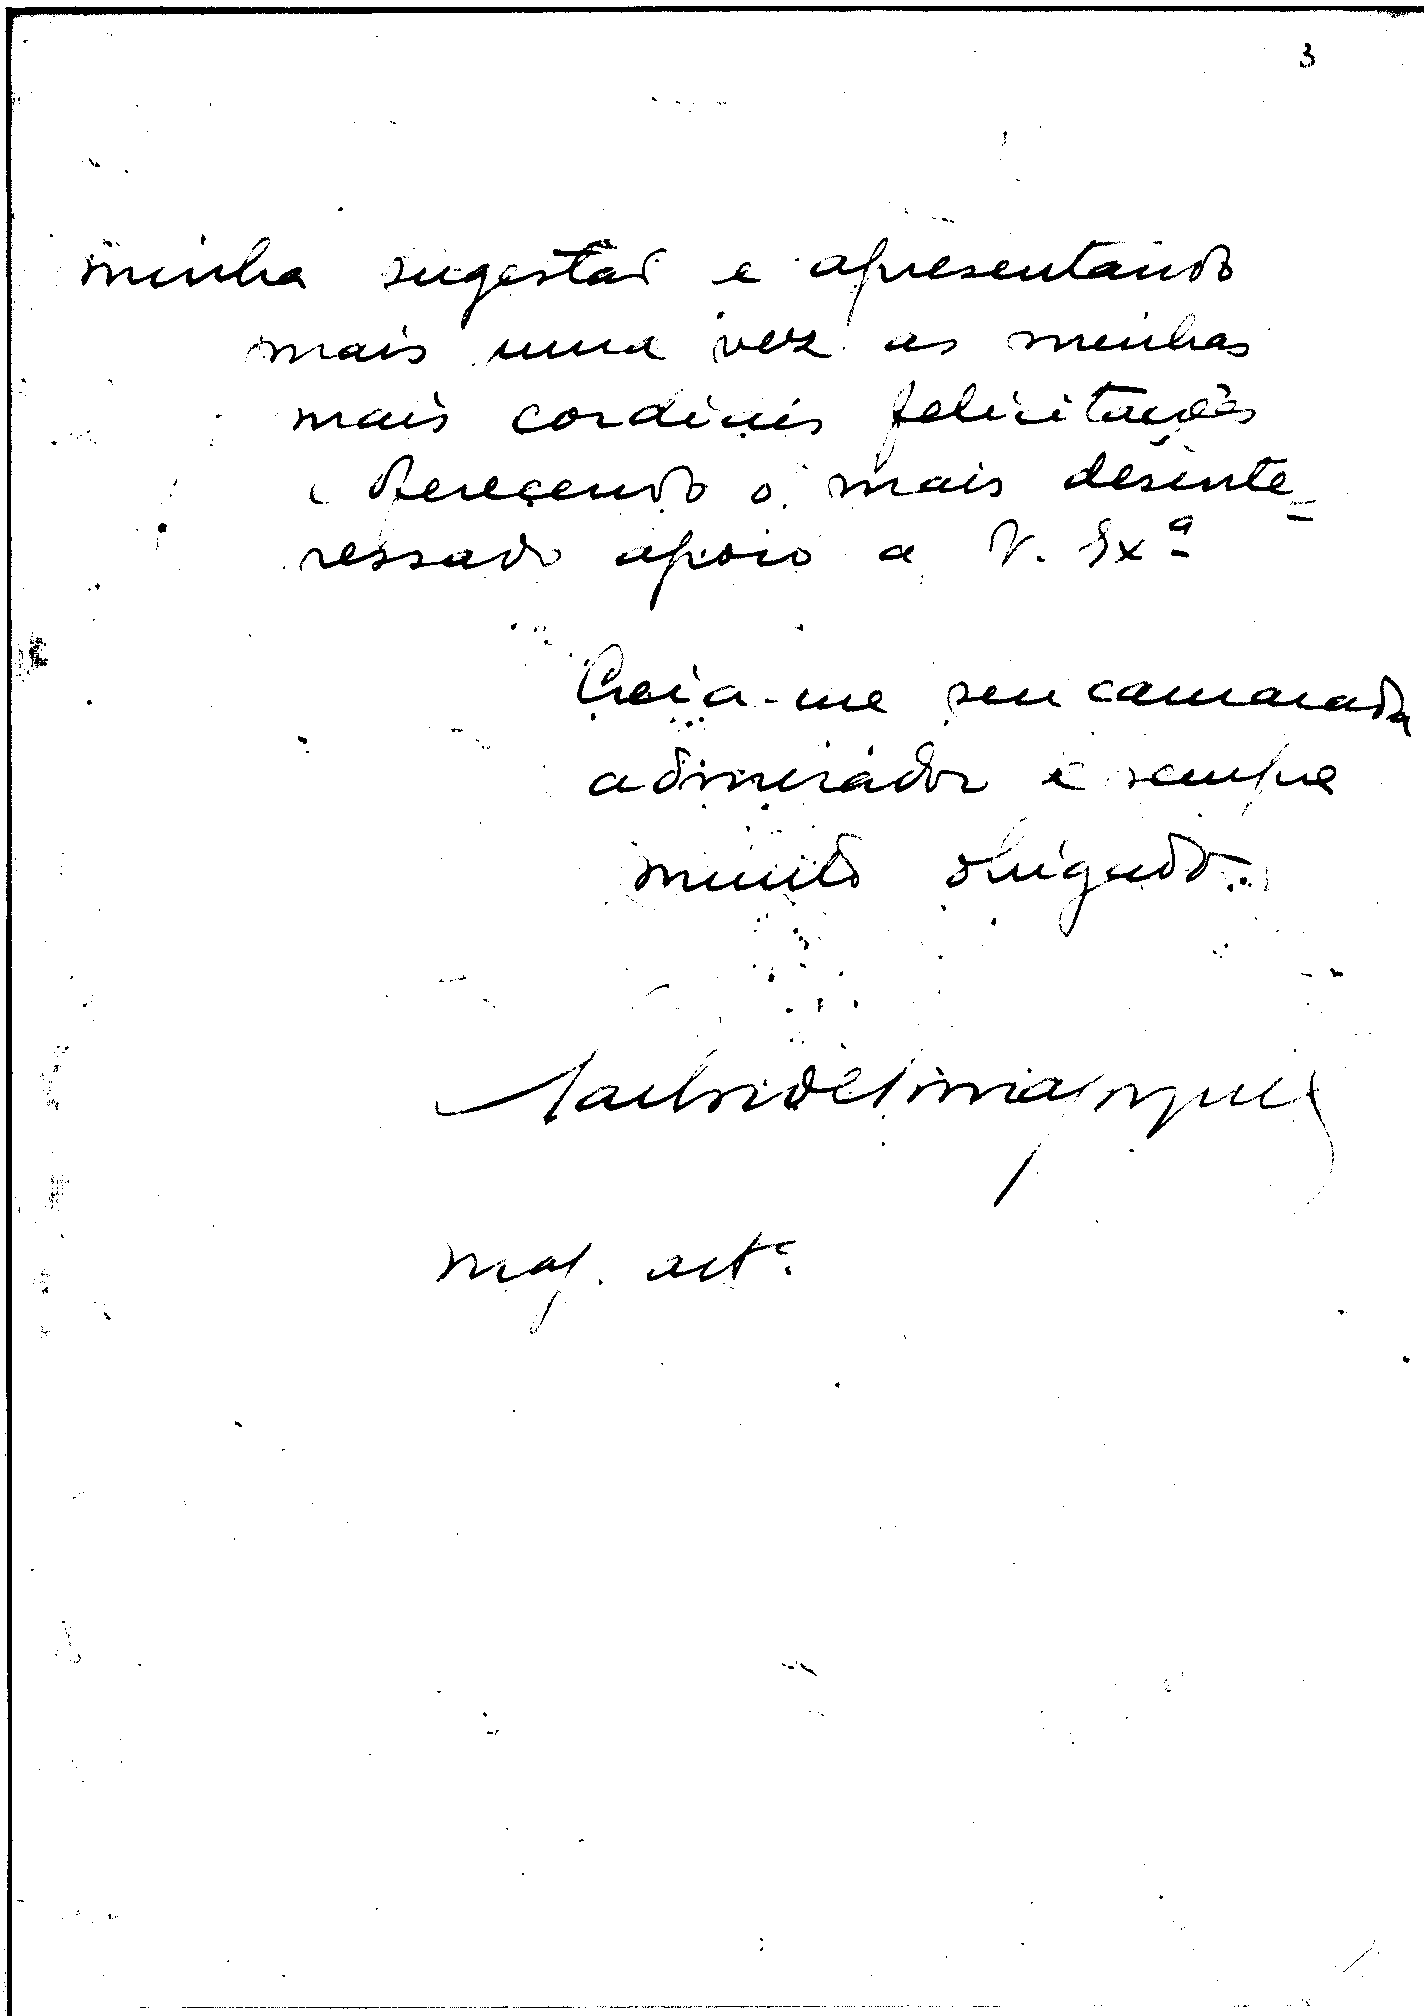 3
minha sugestão e apresentando
mais uma vez as minhas
mais cordiais felicitações
e oferecendo o mais desinte-
ressado apoio a V. Exª
Creia-me seu camarada
admirador e sempre
muito obrigado.
maj. artª